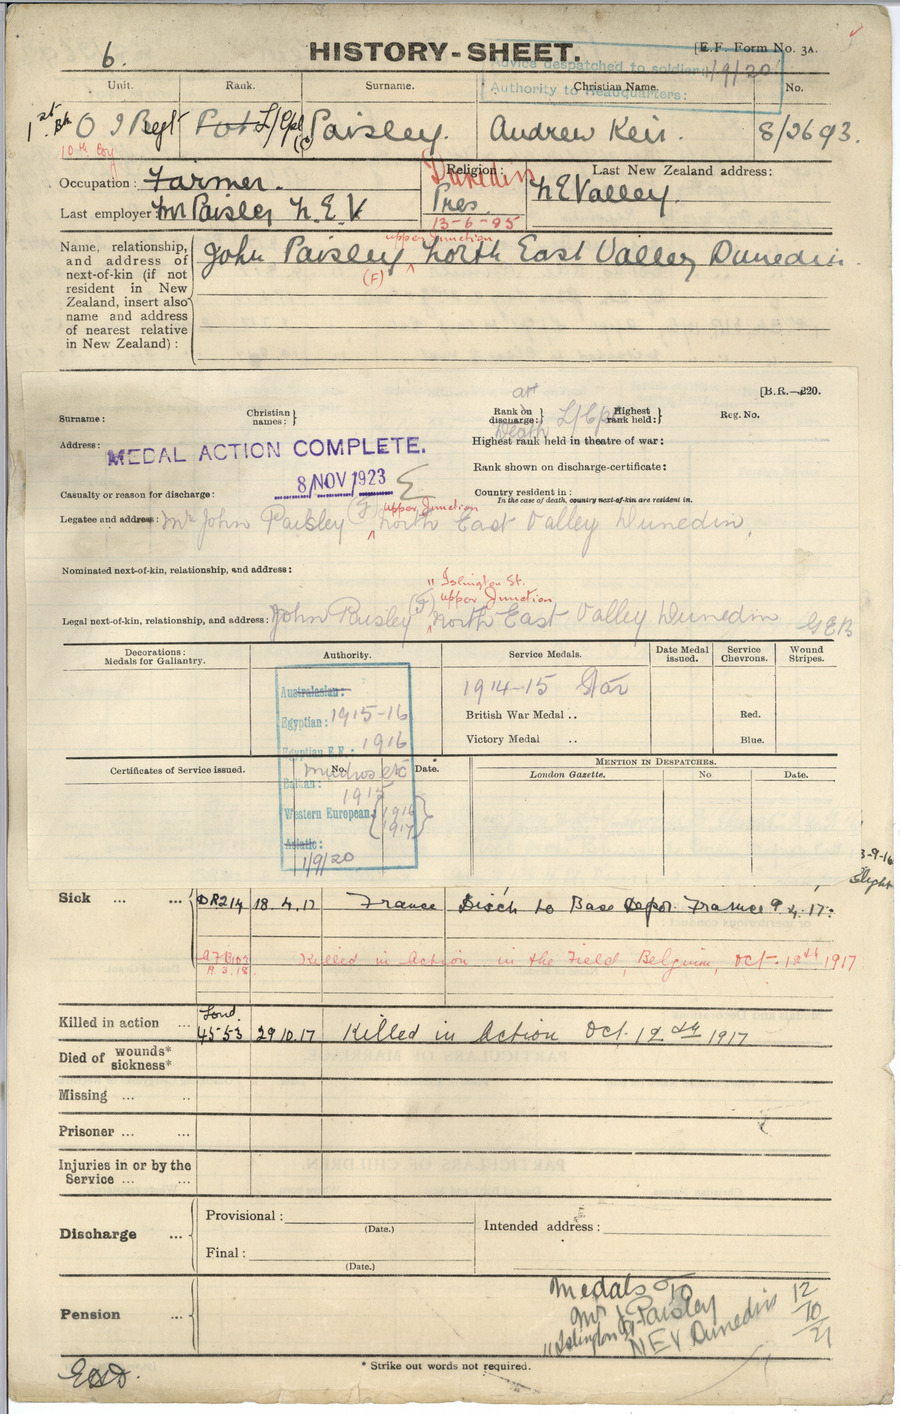 6.
HISTORY-SHEET.
[E.F. Form No. 3A.
Advice despatched to soldier: 1/9/20
Authority to Headquarters:
Unit. Rank. Surname. Christian Name. No.
1st Bn O I Regt Pvt L/Cpl Paisley. Andrew Keir. 8/2693.
10th Coy
Occupation : Farmer.
Religion : Pres
Dunedin
13-6-95
Last New Zealand address:
N E Valley.
Last employer: Mr Paisley N. E. V
Name, relationship, and address of next-of-kin (if not resident in New Zealand, insert also name and address of nearest relative in New Zealand) :
upper Junction
John Paisley, North East Valley Dunedin.
(F)
[B.R.—220.
Surname :
Christian names :
at
Rank on discharge: L/Cpl
Death
Highest rank held:
Reg. No.
Address :
MEDAL ACTION COMPLETE.
8 NOV 1923
Highest rank held in theatre of war :
Rank shown on discharge-certificate :
Casualty or reason for discharge :
Country resident in :
In the case of death, country next-of-kin are resident in.
upper Junction
Legatee and address: Mr John Paisley (F) North East Valley Dunedin,
Nominated next-of-kin, relationship, and address :
11 Islington St.
upper Junction
Legal next-of-kin, relationship, and address : John Paisley (F) North East Valley Dunedin GEB
Decorations : Medals for Gallantry.
Authority.
Service Medals.
Date Medal issued.
Service Chevrons.
Wound Stripes.
Australasian :
Egyptian : 1915-16
Egyptian E.F. : 1916
Mudros etc
Balkan : 1915
Western European { 1916 1917 }
Asiatic :
1/9/20
1914-15 Star
British War Medal ..
Victory Medal ..
Red.
Blue.
Certificates of Service issued.
No.
Date.
MENTION IN DESPATCHES.
London Gazette. No Date.
3-9-16
Slight
Sick ... ... DR214 18.4.17 France Disch to Base Depot France 9.4.17.
Killed in Action in the Field, Belgium, Oct. 12th 1917
Killed in action ... Lond 4553 29.10.17 Killed in Action Oct. 12th 1917
Died of wounds* sickness*
Missing ... ...
Prisoner ... ...
Injuries in or by the Service ... ...
Discharge ...
Provisional :
(Date.)
Final :
(Date.)
Intended address :
Pension ...
Medals to
Mr J Paisley
11 Islington St
NEV Dunedin
12/10/21
* Strike out words not required.